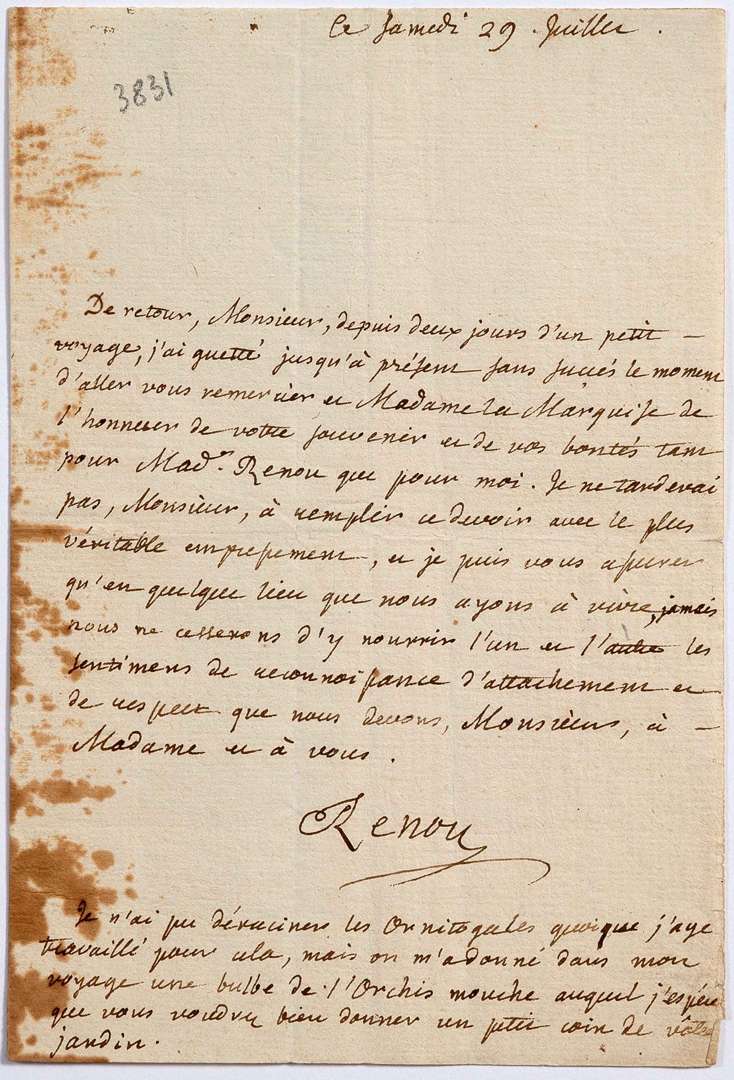 Ce Samedi 29. Juillet.
3831
De retour, Monsieur, depuis deux jours d'un petit –
voyage, j'ai guetté jusqu'à présent sans succés le moment
d'aller vous remercier et Madame la Marquise de
l'honneur de votre souvenir et de vos bontés tant
pour Made. Renou que pour moi. Je ne tarderai
pas, Monsieur, à remplir ce devoir avec le plus
véritable empressement, et je puis vous assurer
qu'en quelque lieu que nous ayons à vivre, jamais
nous ne cesserons d'y nourrir l'un et l'autre les
sentimens de reconnoissance d'attachement et
de respect que nous devons, Monsieur, à –
Madame et à vous.
Renou
Je n'ai pu déraciner les Ornitogales quoique j'aye
travaillé pour cela, mais on m'a donné dans mon
voyage une bulbe de l'Orchis mouche auquel j'espére
que vous voudrez bien donner un petit coin de vôtre
jardin.